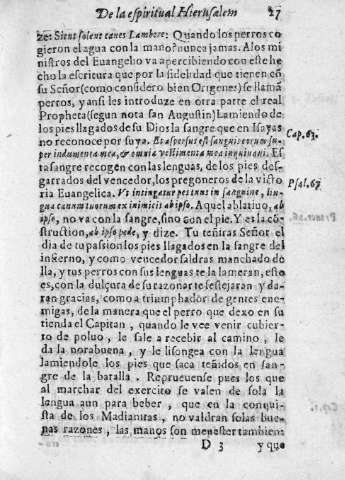 De la espiritual Hierusalem 27
ze: Sicut solent canes Lambere: Quando los perros co
gieron el agua con la mano? nunca jamas. A los mi
nistros del Euangelio va apercibiendo con este he
cho la escritura que por la fidelidad que tienen en
su Señor (como considero bien Origenes) se llamã
perros, y ansi les introduze en otra parte el real
Propheta (segun nota san Augustin) Lamiendo de
los pies llagados de su Dios la sangre que en Isayas
no reconoce por suya. Et aspersus est sanguis eorum su-
per indumenta mea, & omnia vestimenta mea inquinaui. Es
Cap. 63.
ta sangre recogen con las lenguas, de los pies des-
garrados del vencedor, los pregoneros de la victo
ria Euangelica. Vt intingatur pes tuus in sanguine, lin-
Psal. 67.
gua canum tuorum ex inimicis ab ipso. Aquel ablatiuo, ab
ipso, no va con la sangre, sino con el pie. Y es la cõ-
struction, ab ipso pede, y dize. Tu teñiras Señor el
dia de tu passion los pies llagados en la sangre del
infierno, y como vencedor saldras manchado de
lla, y tus perros con sus lenguas te la lameran, esto
es, con la dulçura de su razonar te festejaran y da-
ran gracias, como a triumphador de gentes ene-
migas, de la manera que el perro que dexo en su
tienda el Capitan, quando le vee venir cubier-
to de poluo, le sale a recebir al camino, le
da la norabuena, y le lisongea con la lengua
lamiendole los pies que saca teñidos en san-
gre de la batalla. Reprueuense pues los que
al marchar del exercito se valen de sola la
lengua aun para beber, que en la conquis-
ta de los Madianitas, no valdran solas bue-
nas razones, las manos son menester tambien:
D 3 y que